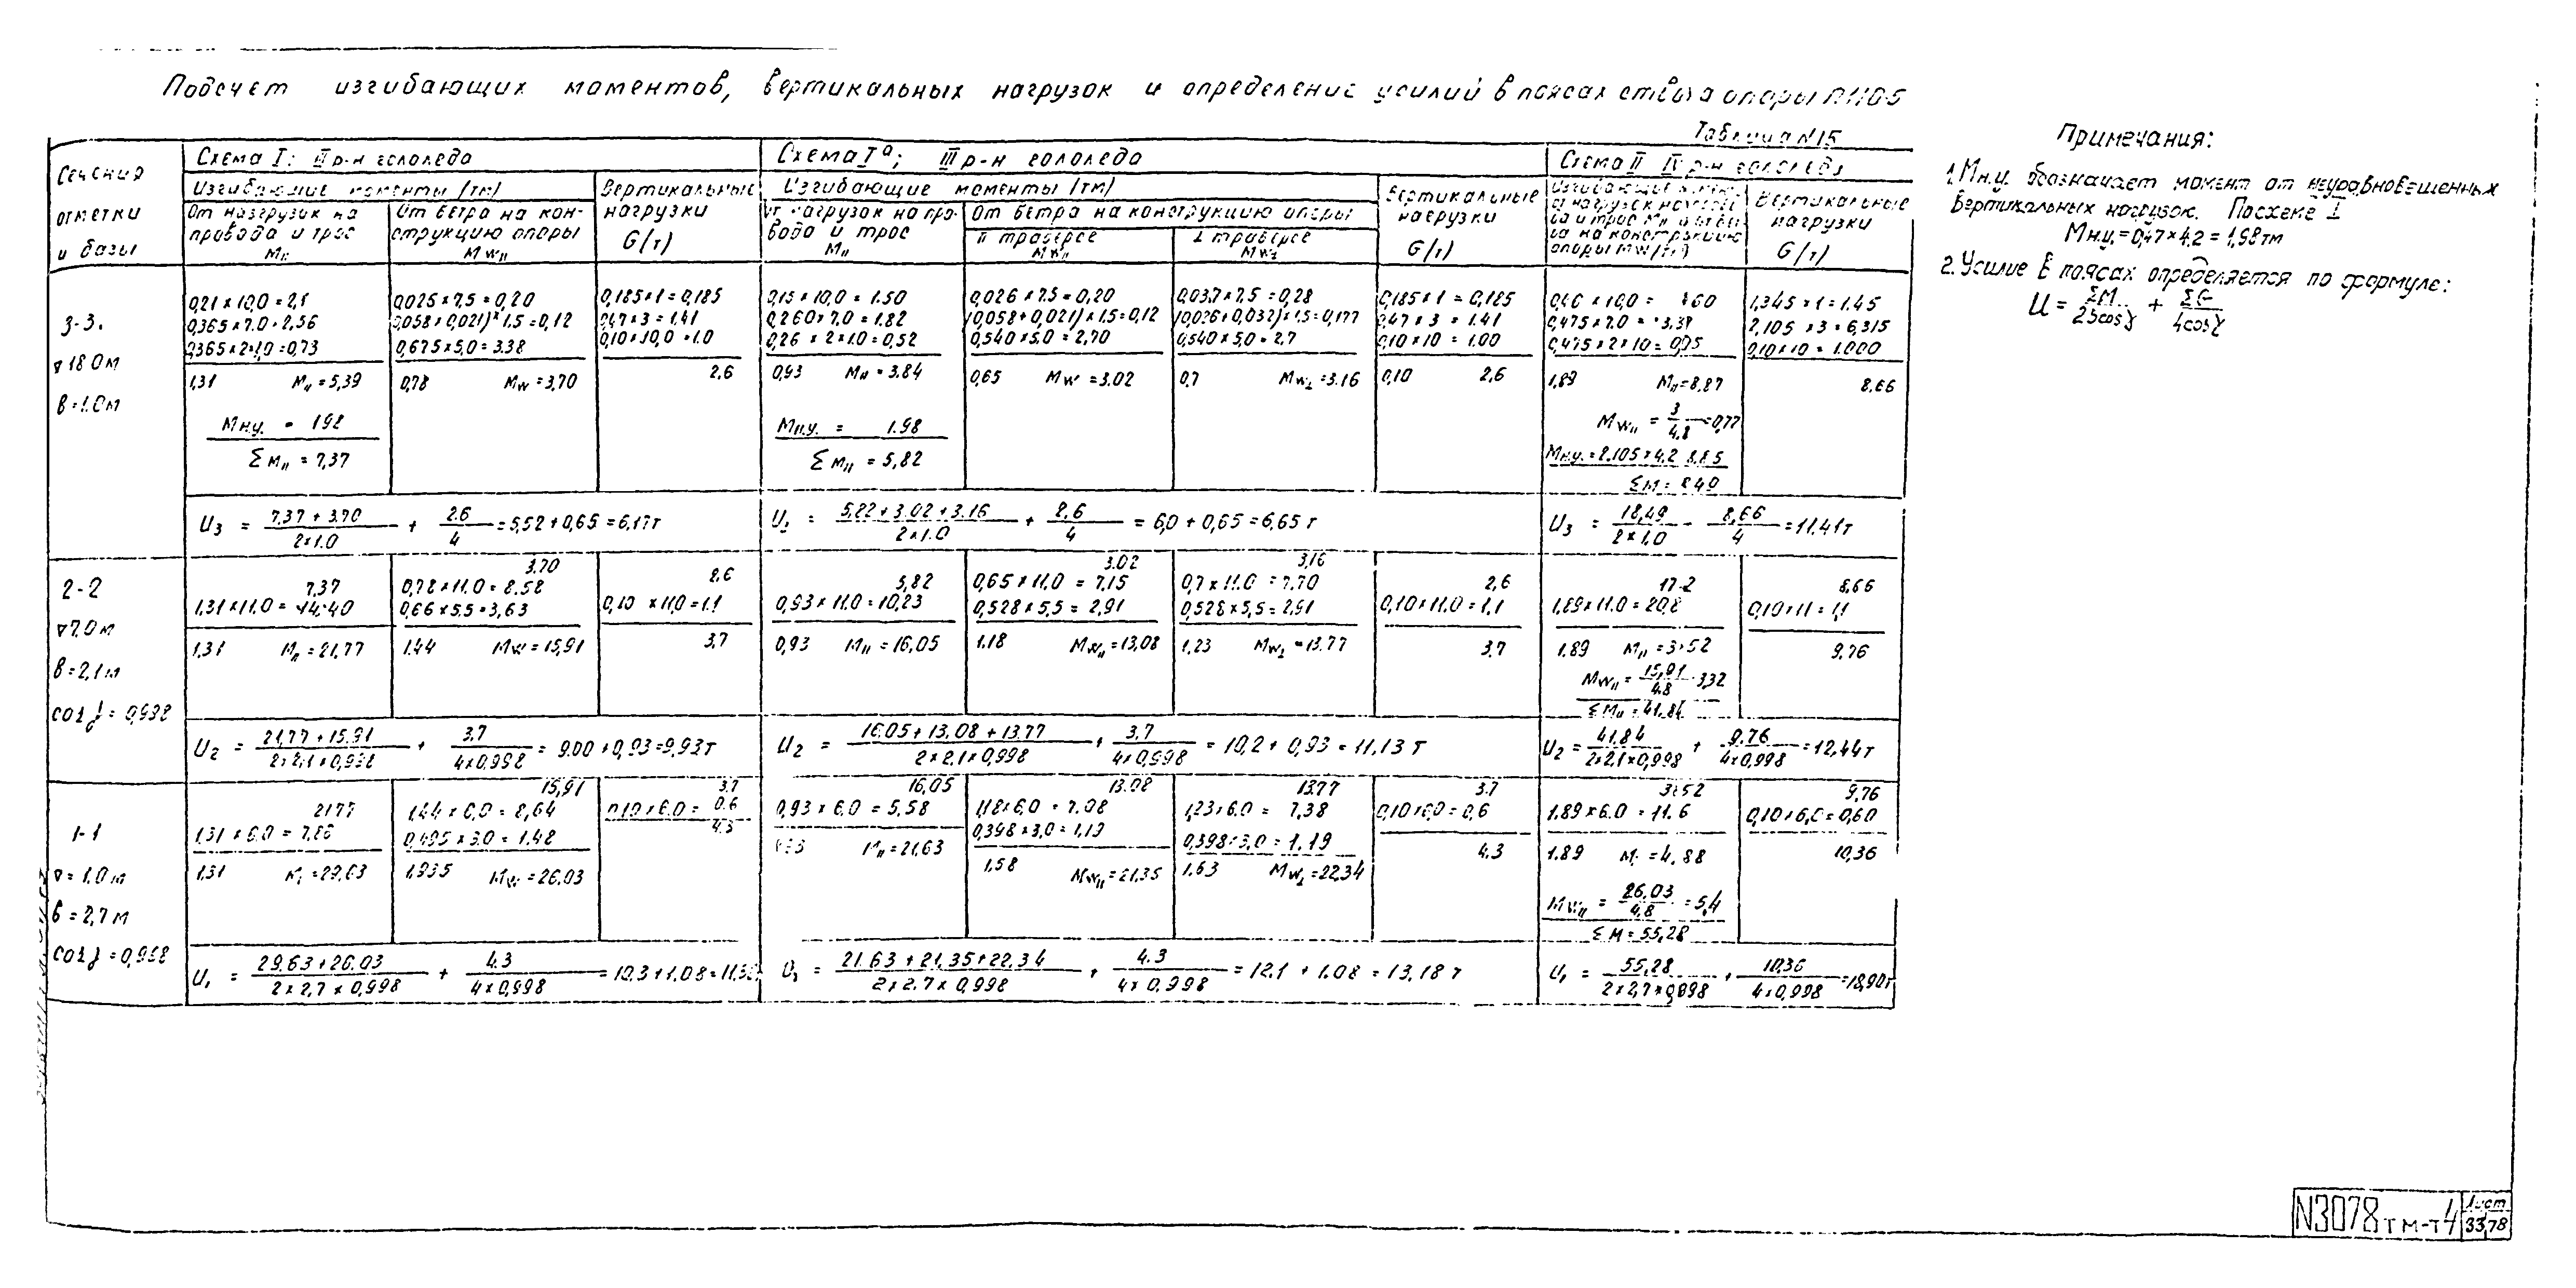 Подсчет изгибающих моментов, вертикальных нагрузок и определение усилий в поясах ствола опоры П110-5
Таблица N15
Сечения отметки и базы
Схема I: II р-н гололеда
Изгибающие моменты (тм)
От нагрузок на провода и трос M"
От ветра на конструкцию опоры Mw"
Вертикальные нагрузки G(т)
Схема Iа; III р-н гололеда
Изгибающие моменты (тм)
от нагрузок на провода и трос M"
От ветра на конструкцию опоры
II траверсе Mw"
⊥ траверсе Mw⊥
Вертикальные нагрузки G(т)
Схема II IV р-н гололеда
Изгибающие
на конструкцию опоры
Вертикальные нагрузки G(т)
3-3.
∇ 18.0м
в=1.0м
0,21 x 10,0 = 2,1
0,365 x 7.0 = 2,56
0,365 x 2 x 1,0 = 0,73
1,31 M" = 5,39
Mн.у. = 1.98
ΣM" = 7,37
0,025 x 7,5 = 0,20
(0,058 + 0,021) x 1.5 = 0,12
0,675 x 5,0 = 3.38
0,78 Mw = 3,70
0,185 x 1 = 0,185
0,47 x 3 = 1.41
0,10 x 10,0 = 1.0
2,6
0,15 x 10,0 = 1.50
0,260 x 7,0 = 1.82
0,26 x 2 x 1.0 = 0,52
0,93 M" = 3.84
Mн.у. = 1.98
ΣM" = 5,82
0,026 x 7.5 = 0,20
(0,058 + 0,021) x 1.5 = 0,12
0,540 x 5.0 = 2,70
0,65 Mw = 3.02
0,037 x 7,5 = 0,28
0,540 x 5,0 = 2,7
0,7 Mw⊥ = 3.16
0,185 x 1 = 0,185
0,47 x 3 = 1.41
0,10 x 10 = 1.00
0,10 2,6
0,475 x 7.0 =
1,89 M" = 8,87
Mw" = 3/4.8 = 0,77
Mн.у. = 2.105 x 4.2
1,345 x 1 = 1.45
2,105 x 3 = 6,315
0,10 x 10 = 1.000
8.66
U3 = (7.37 + 3.70)/(2 x 1.0) + 2.6/4 = 5,52 + 0,65 = 6,17т
= (5,82 + 3.02 + 3.16)/(2 x 1.0) + 2,6/4 = 6,0 + 0,65 = 6,65 т
U3 = 18,49/(2 x 1.0) - 8,66/4 = 11.41т
2-2
∇7.0м
в=2,1м
cos γ = 0,998
7,37
1,31 x 11.0 = 14.40
1,31 M" = 21,77
3.70
0,78 x 11.0 = 8.58
0,66 x 5,5 = 3,63
1.44 Mw = 15,91
2.6
0,10 x 11,0 = 1.1
3.7
5,82
0,93 x 11.0 = 10,23
0,93 M" = 16,05
3.02
0,65 x 11.0 = 7,15
0,528 x 5,5 = 2,91
1.18 Mw" = 13,08
3,16
0,7 x 11.0 = 7,70
0,528 x 5,5 = 2,91
1,23 Mw⊥ = 13.77
2,6
0,10 x 11.0 = 1,1
3.7
17.2
1,89 x 11.0 = 20,8
1.89
Mw" = 15,91/4.8 3,32
ΣM" = 41.84
8,66
0,10 x 11 = 1,1
9,76
U2 = (21,77 + 15.91)/(2 x 2,1 x 0,998) + 3.7/(4 x 0,998) = 9.00 + 0,93 = 9,93т
U2 = (16.05 + 13,08 + 13.77)/(2 x 2.1 x 0,998) + 3,7/(4 x 0,998) = 10,2 + 0,93 = 11,13 т
U2 = 41,84/(2 x 2,1 x 0,998) + 9.76/(4 x 0,998) = 12,44т
1-1
∇ = 1.0м
в = 2,7м
cos γ = 0,998
21,77
1,31 x 6.0 = 7,86
1,31 M" = 29,63
15,91
1,44 x 6,0 = 8,64
0,495 x 3.0 = 1.48
1.935 Mw = 26.03
3.7
0,10 x 6.0 = 0.6
4.3
16,05
0,93 x 6.0 = 5,58
M" = 21,63
13.08
1,18 x 6,0 = 7.08
0,398 x 3,0 = 1,19
1,58 Mw" = 21,35
13.77
1,23 x 6.0 = 7,38
0,398 x 3,0 = 1,19
1,63 Mw⊥ = 22,34
3.7
0,10 x 6,0 = 0,6
4.3
1.89 x 6.0 = 11.6
1.89
Mw" = 26,03/4,8 = 5,4
ΣM = 55,28
9,76
0,10 x 6,0 = 0,60
10,36
U1 = (29.63 + 26.03)/(2 x 2,7 x 0,998) + 4.3/(4 x 0,998) = 10.3 + 1.08 =
= (21.63 + 21,35 + 22,34)/(2 x 2.7 x 0,998) + 4.3/(4 x 0,998) = 12,1 + 1.08 = 13,18 т
U1 = 55,28/(2 x 2,7 x 0,998) + 10,36/(4 x 0,998)
Примечания:
1. Mн.у. обозначает момент от неуравновешенных
вертикальных нагрузок. По схеме I
Mн.у. = 0,47 x 4,2 = 1,98 тм
2. Усилие в поясах определяется по формуле:
U = ΣM/(2b cos γ) + ΣG/(4 cos γ)
N3078 тм-т4
Лист
33 78